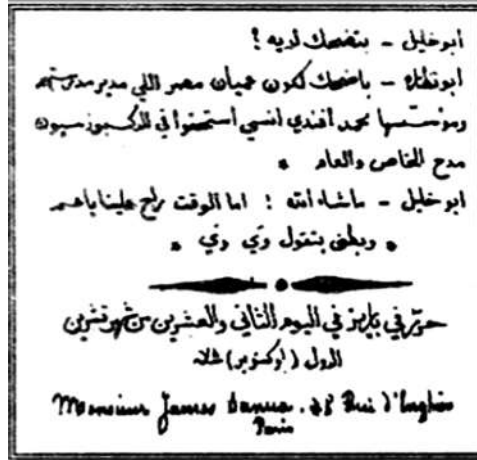 أبو خليل - بتضحك لديه ؟
أبو نظاره - باضحك لكون عميان مصر اللي مدير مدرستهم
ومؤسسها محمد أفندي انسي استحقوا في الاكسبوزسيون
مدح الخاص والعام *
ابو خليل - ماشاء الله ! اما الوقت راح علينا يا عم
* وبطني بتقول وي وي *
حرّر في باريز في اليوم الثاني والعشرين من شهر تشرين
الاول (اوكتوبر)
Monsieur James Sanua. 48 Rue d'Enghien
Paris